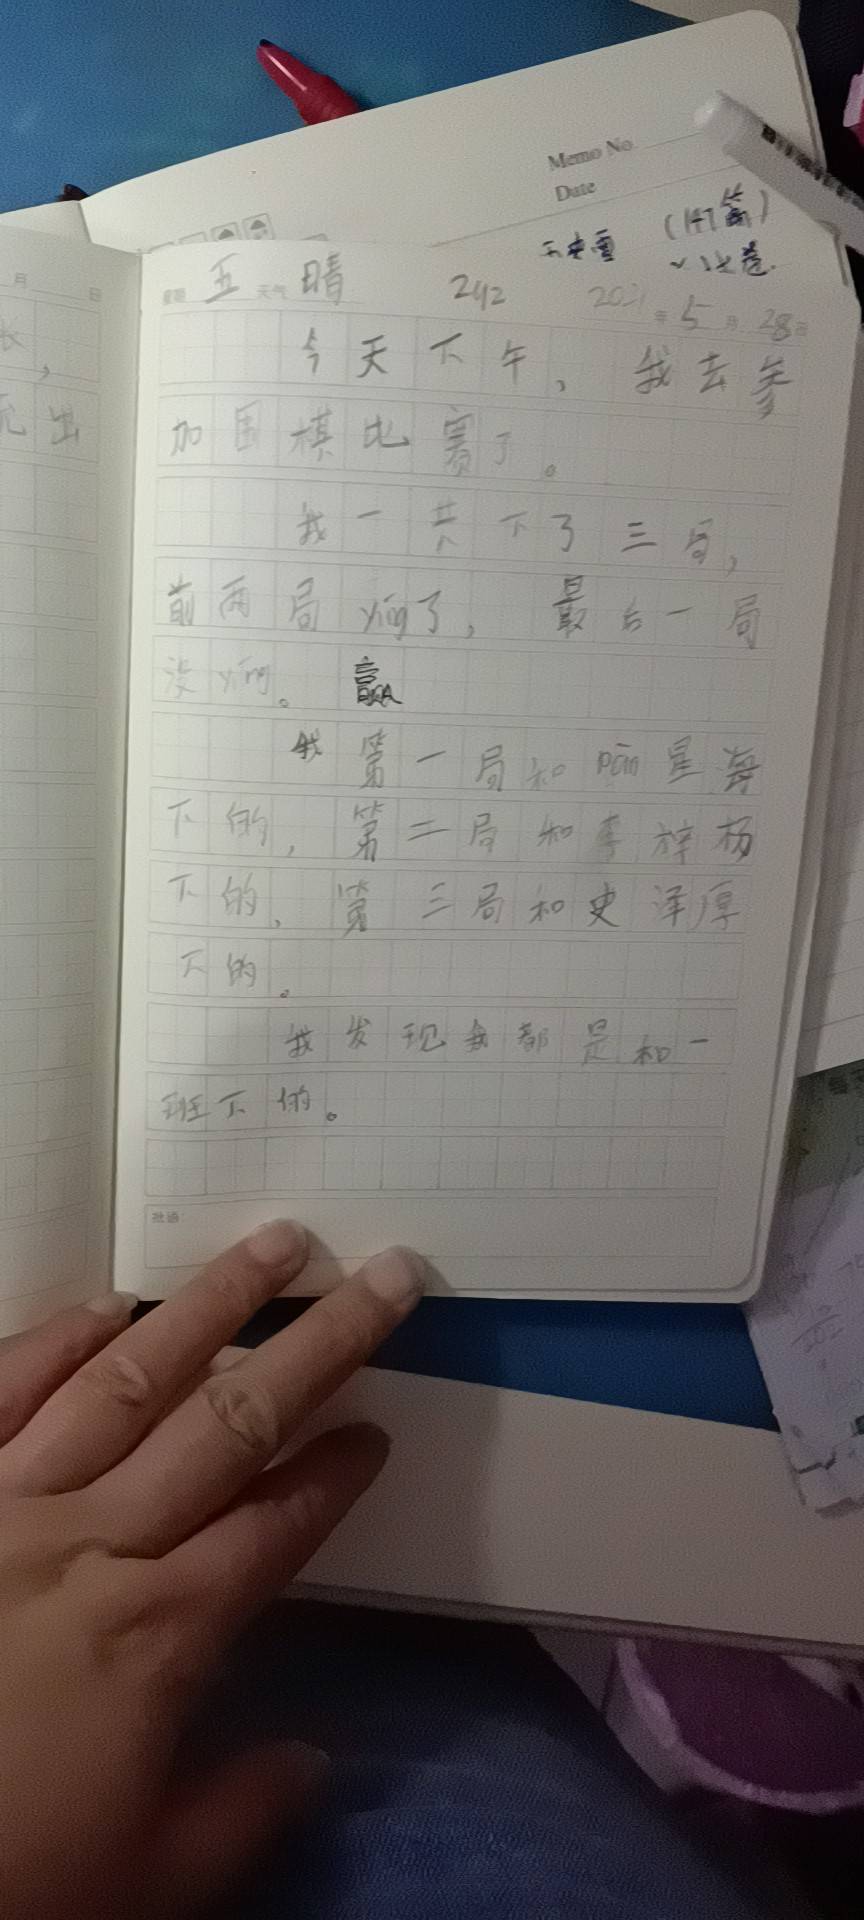 Memo No
Date
(147篇)
星期 五 天气 晴 242 2021年 5月 28日
今天下午，我去参
加围棋比赛了。
我一共下了三局，
前两局yíng了，最后一局
没yíng。赢
我第一局和pān星舜
下的，第二局和李梓杨
下的，第三局和史泽厚
下的。
我发现我都是和一
班下的。
批语：
月 日
出